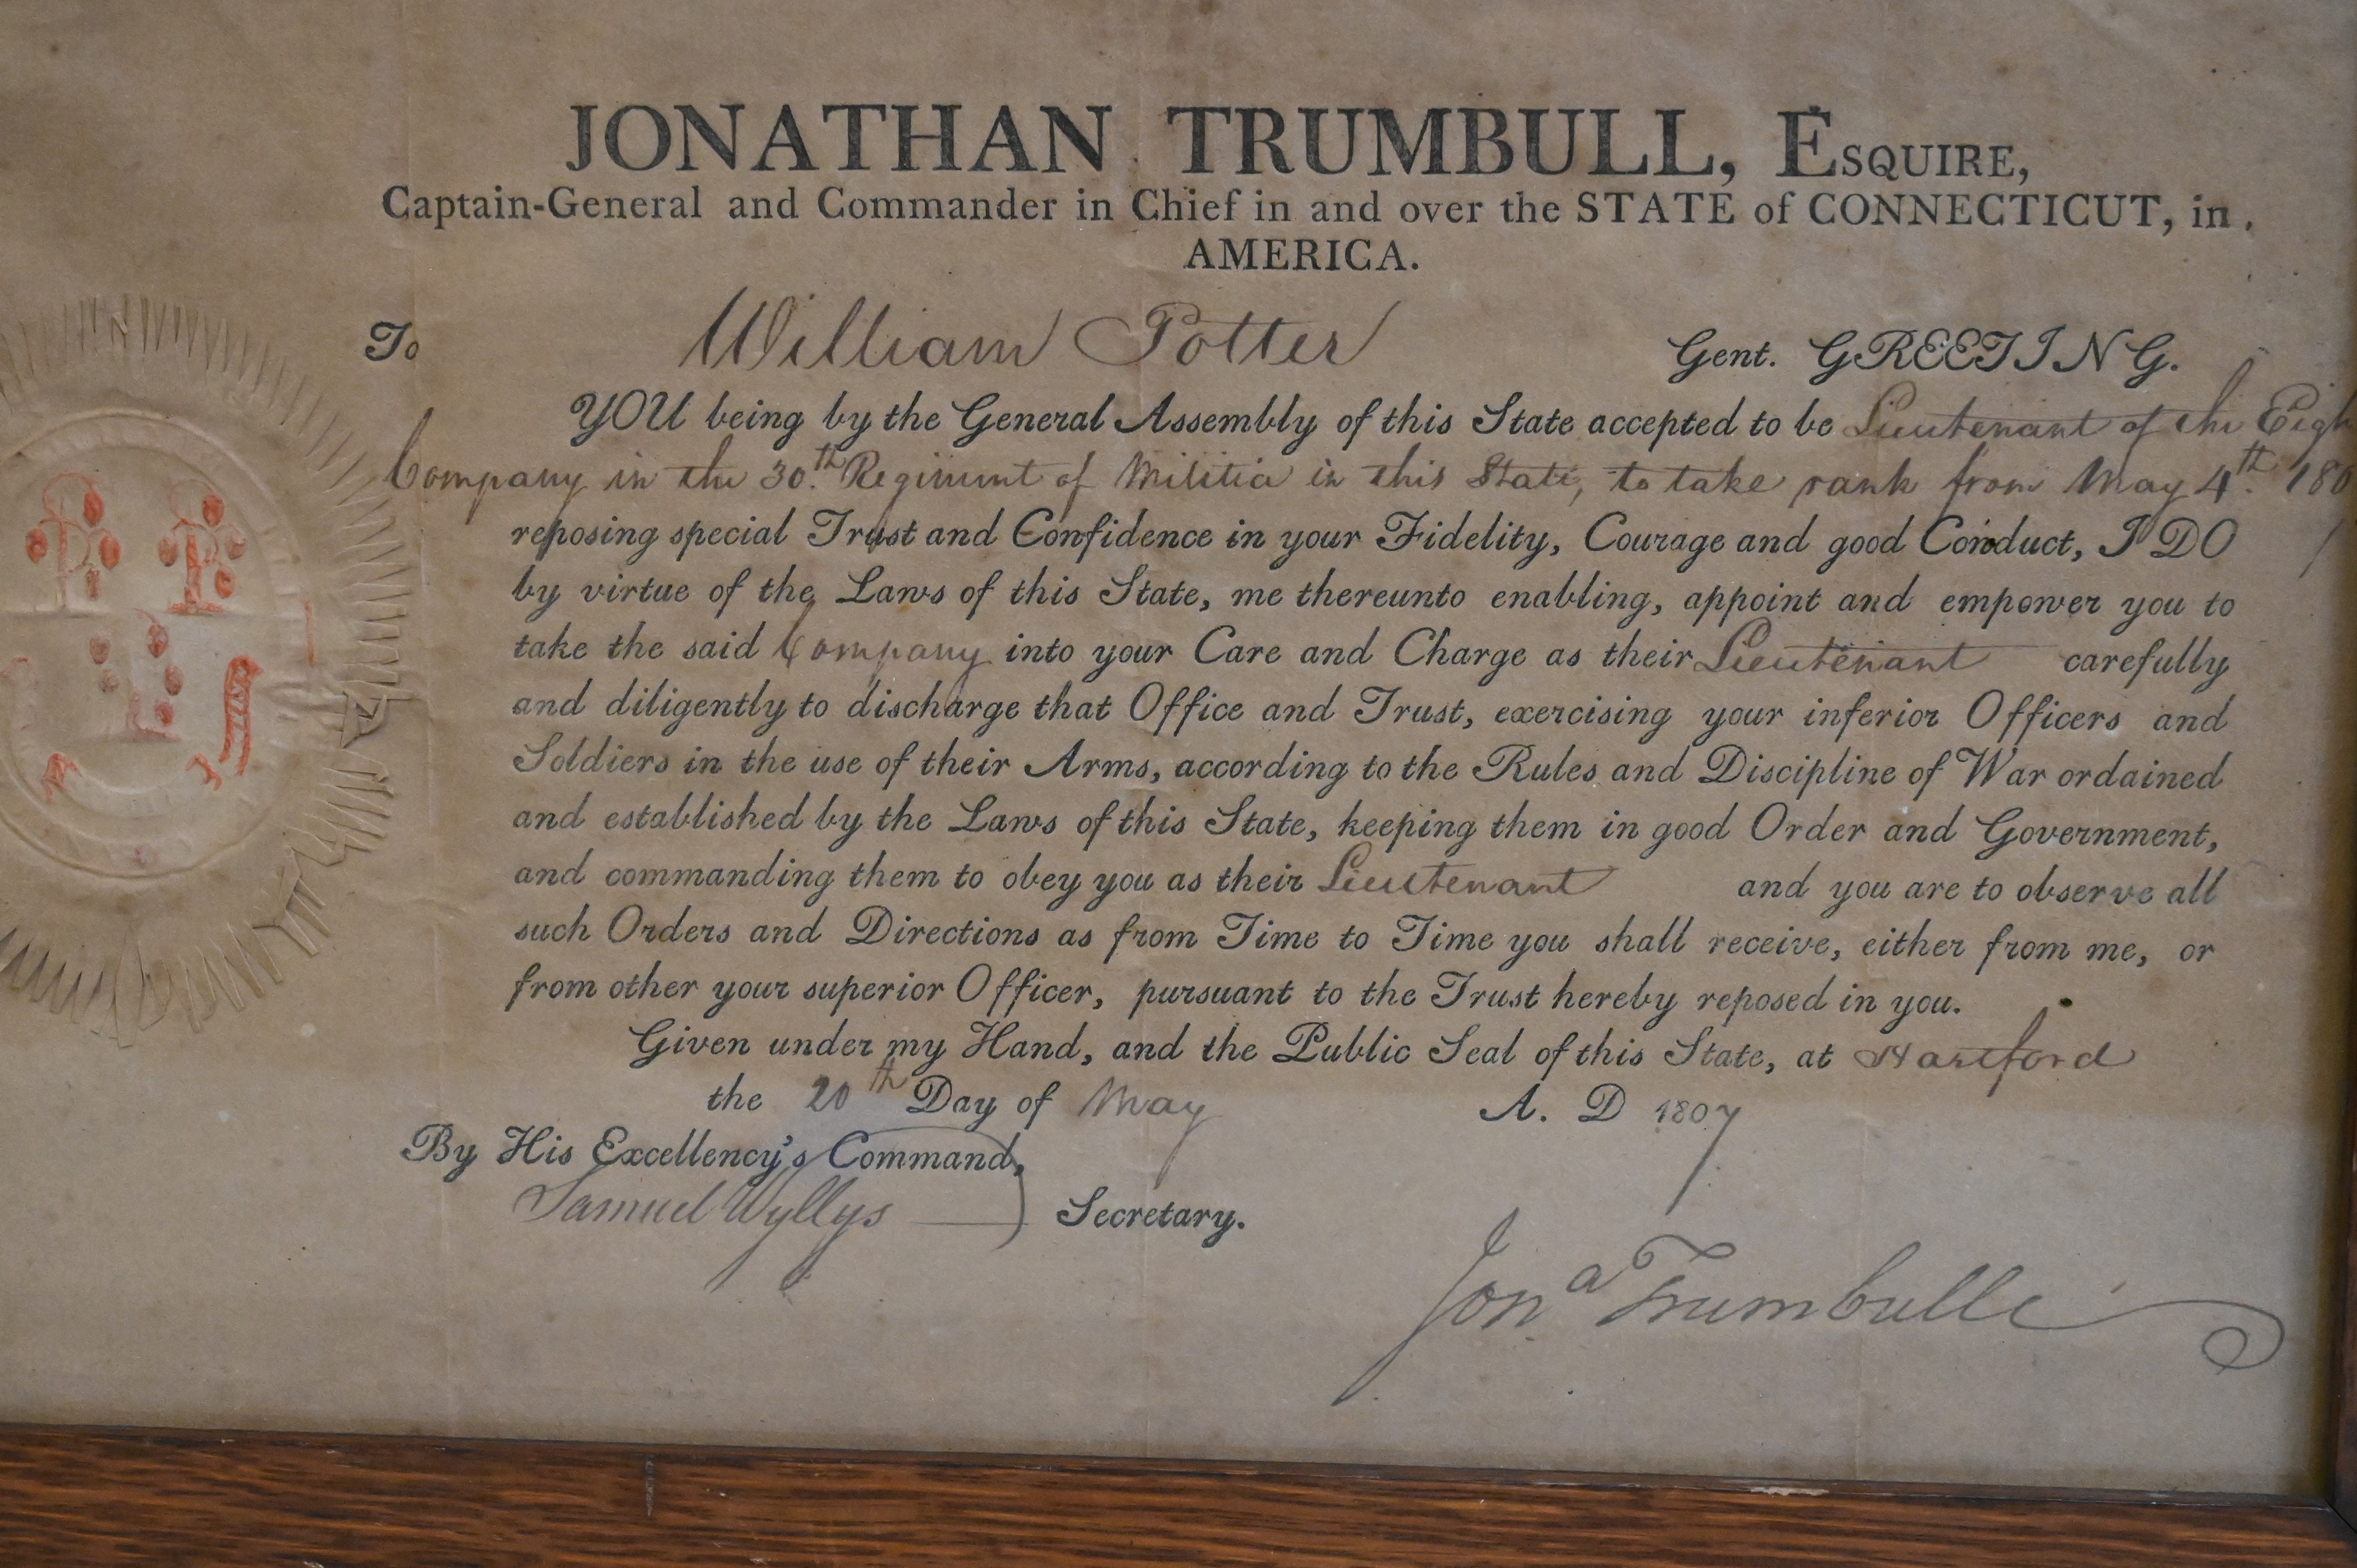 JONATHAN TRUMBULL, ESQUIRE,
Captain-General and Commander in Chief in and over the STATE of CONNECTICUT, in
AMERICA.
To William Potter Gent. GREETING.
YOU being by the General Assembly of this State accepted to be Lieutenant of the Eigh
Company in the 30.th Regiment of Militia in this State, to take rank from May 4th. 180
reposing special Trust and Confidence in your Fidelity, Courage and good Conduct, I DO
by virtue of the Laws of this State, me thereunto enabling, appoint and empower you to
take the said Company into your Care and Charge as their Lieutenant carefully
and diligently to discharge that Office and Trust, exercising your inferior Officers and
Soldiers in the use of their Arms, according to the Rules and Discipline of War ordained
and established by the Laws of this State, keeping them in good Order and Government,
and commanding them to obey you as their Lieutenant and you are to observe all
such Orders and Directions as from Time to Time you shall receive, either from me, or
from other your superior Officer, pursuant to the Trust hereby reposed in you.
Given under my Hand, and the Public Seal of this State, at Hartford
the 20th Day of May A. D 1807
By His Excellency's Command,
Samuel Wyllys Secretary.
Jona Trumbull